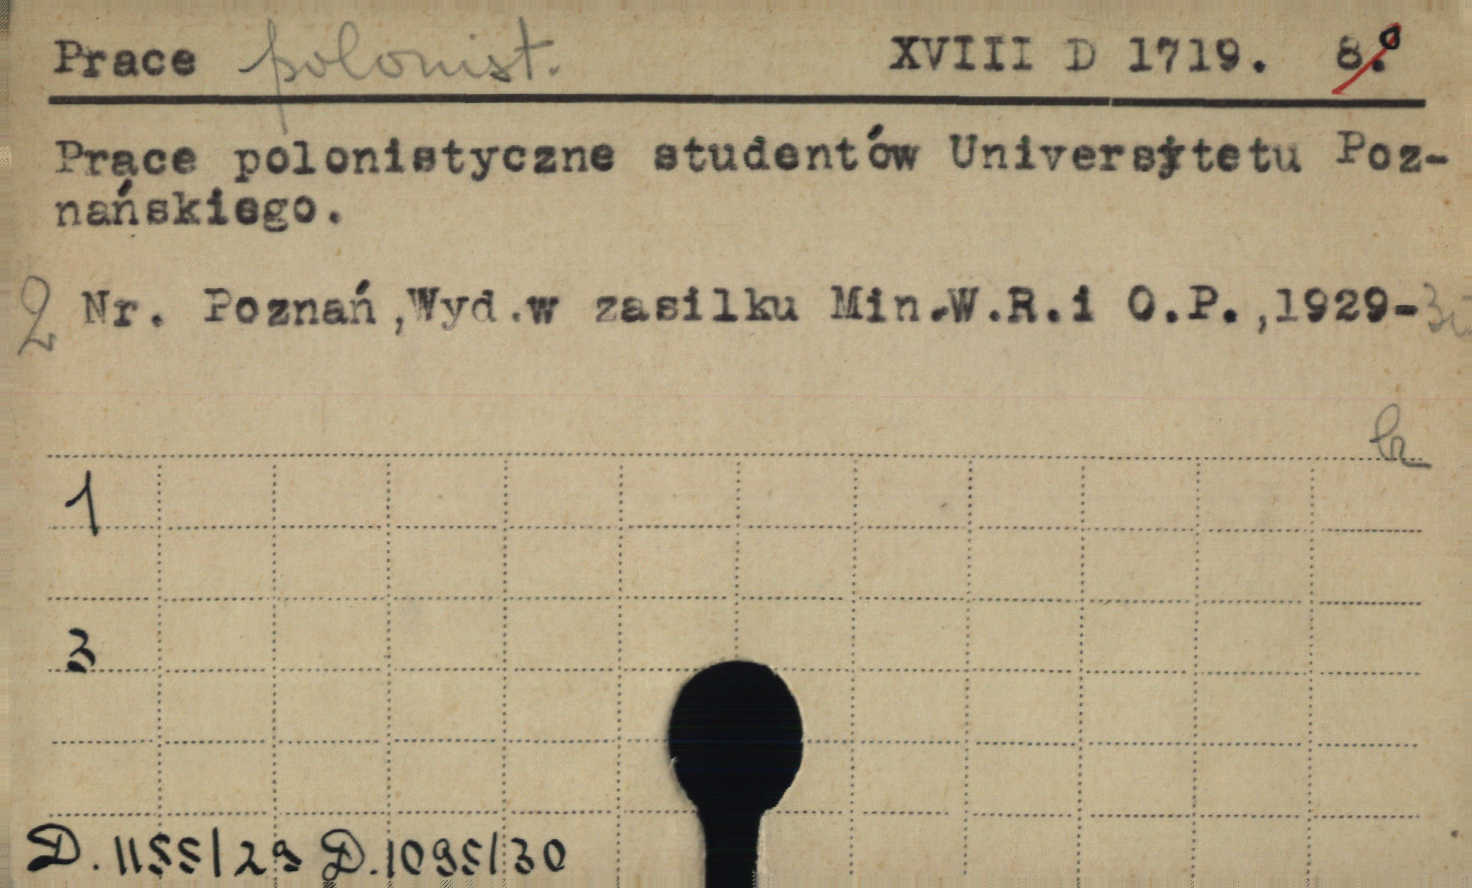 Prace polonist. XVIII D 1719. 8.°
Prace polonistyczne studentów Uniwersytetu Poz-
nańskiego.
2 Nr. Poznań,Wyd.w zasilku Min.W.R.i O.P.,1929-
1
3
D.1155/29 D.1095/30